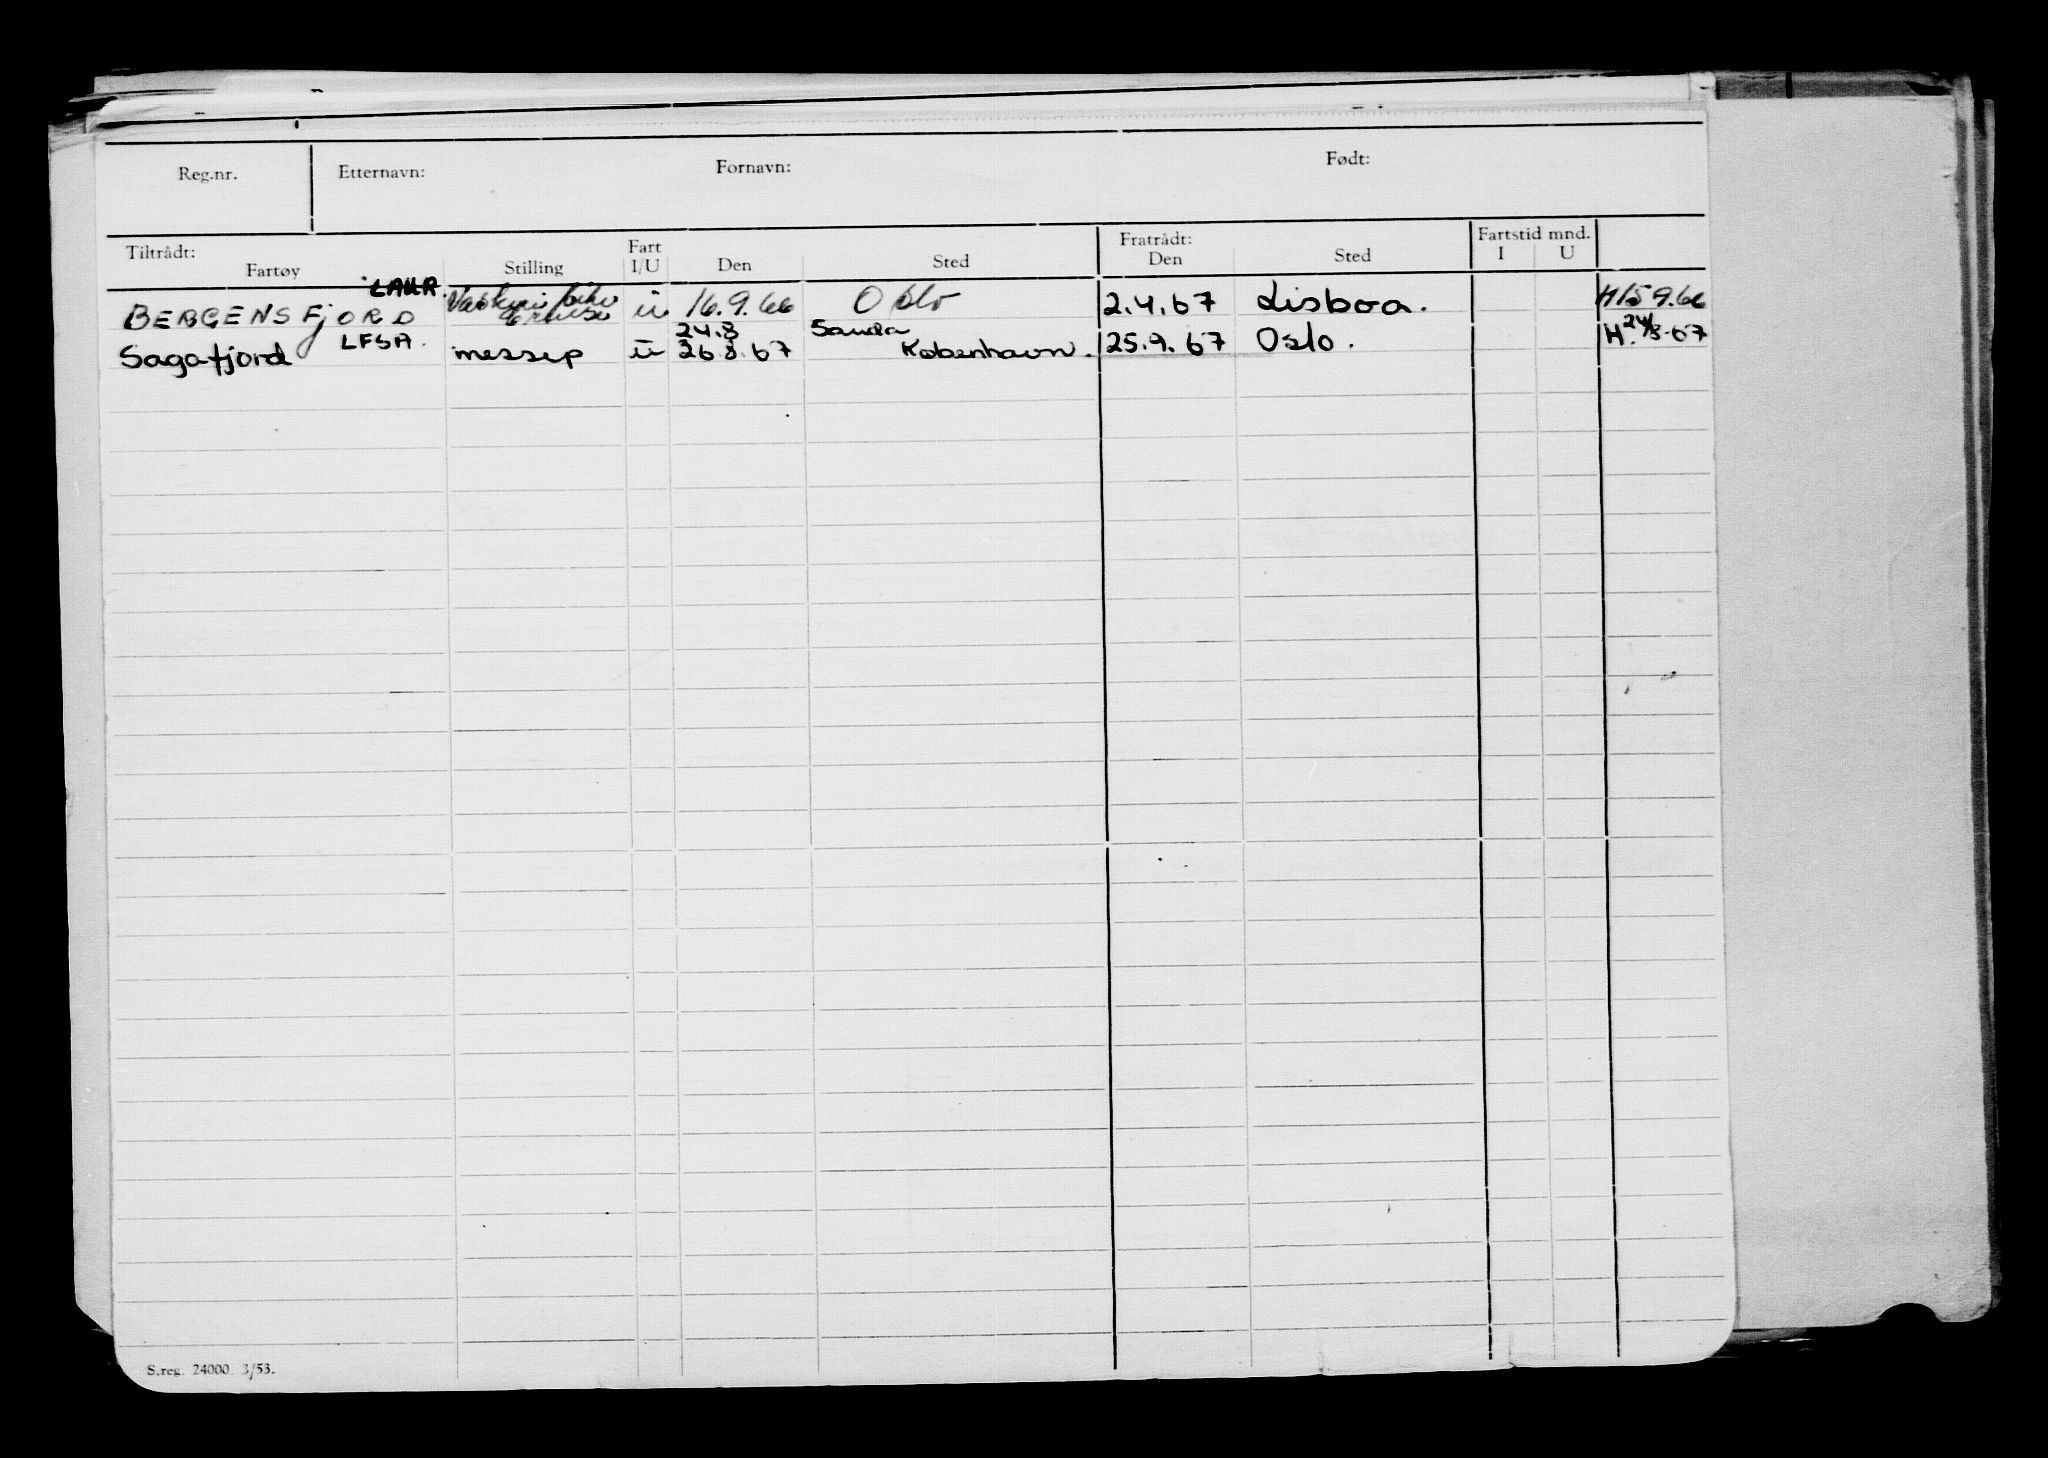 Reg.nr. Etternavn: Fornavn: Født:
Tiltrådt: Fartøy Stilling Fart I/U Den Sted Fratrådt: Den Sted Fartstid mnd. I U
BERGENSFJORD u 16.9.66 Oslo 2.4.67 Lisboa. H 15 9.66
LFSA. 24.8
Sagafjord messep u 26.8.67 København. 25.9.67 Oslo. H. 24/8-67
S.reg. 24000 3/53.